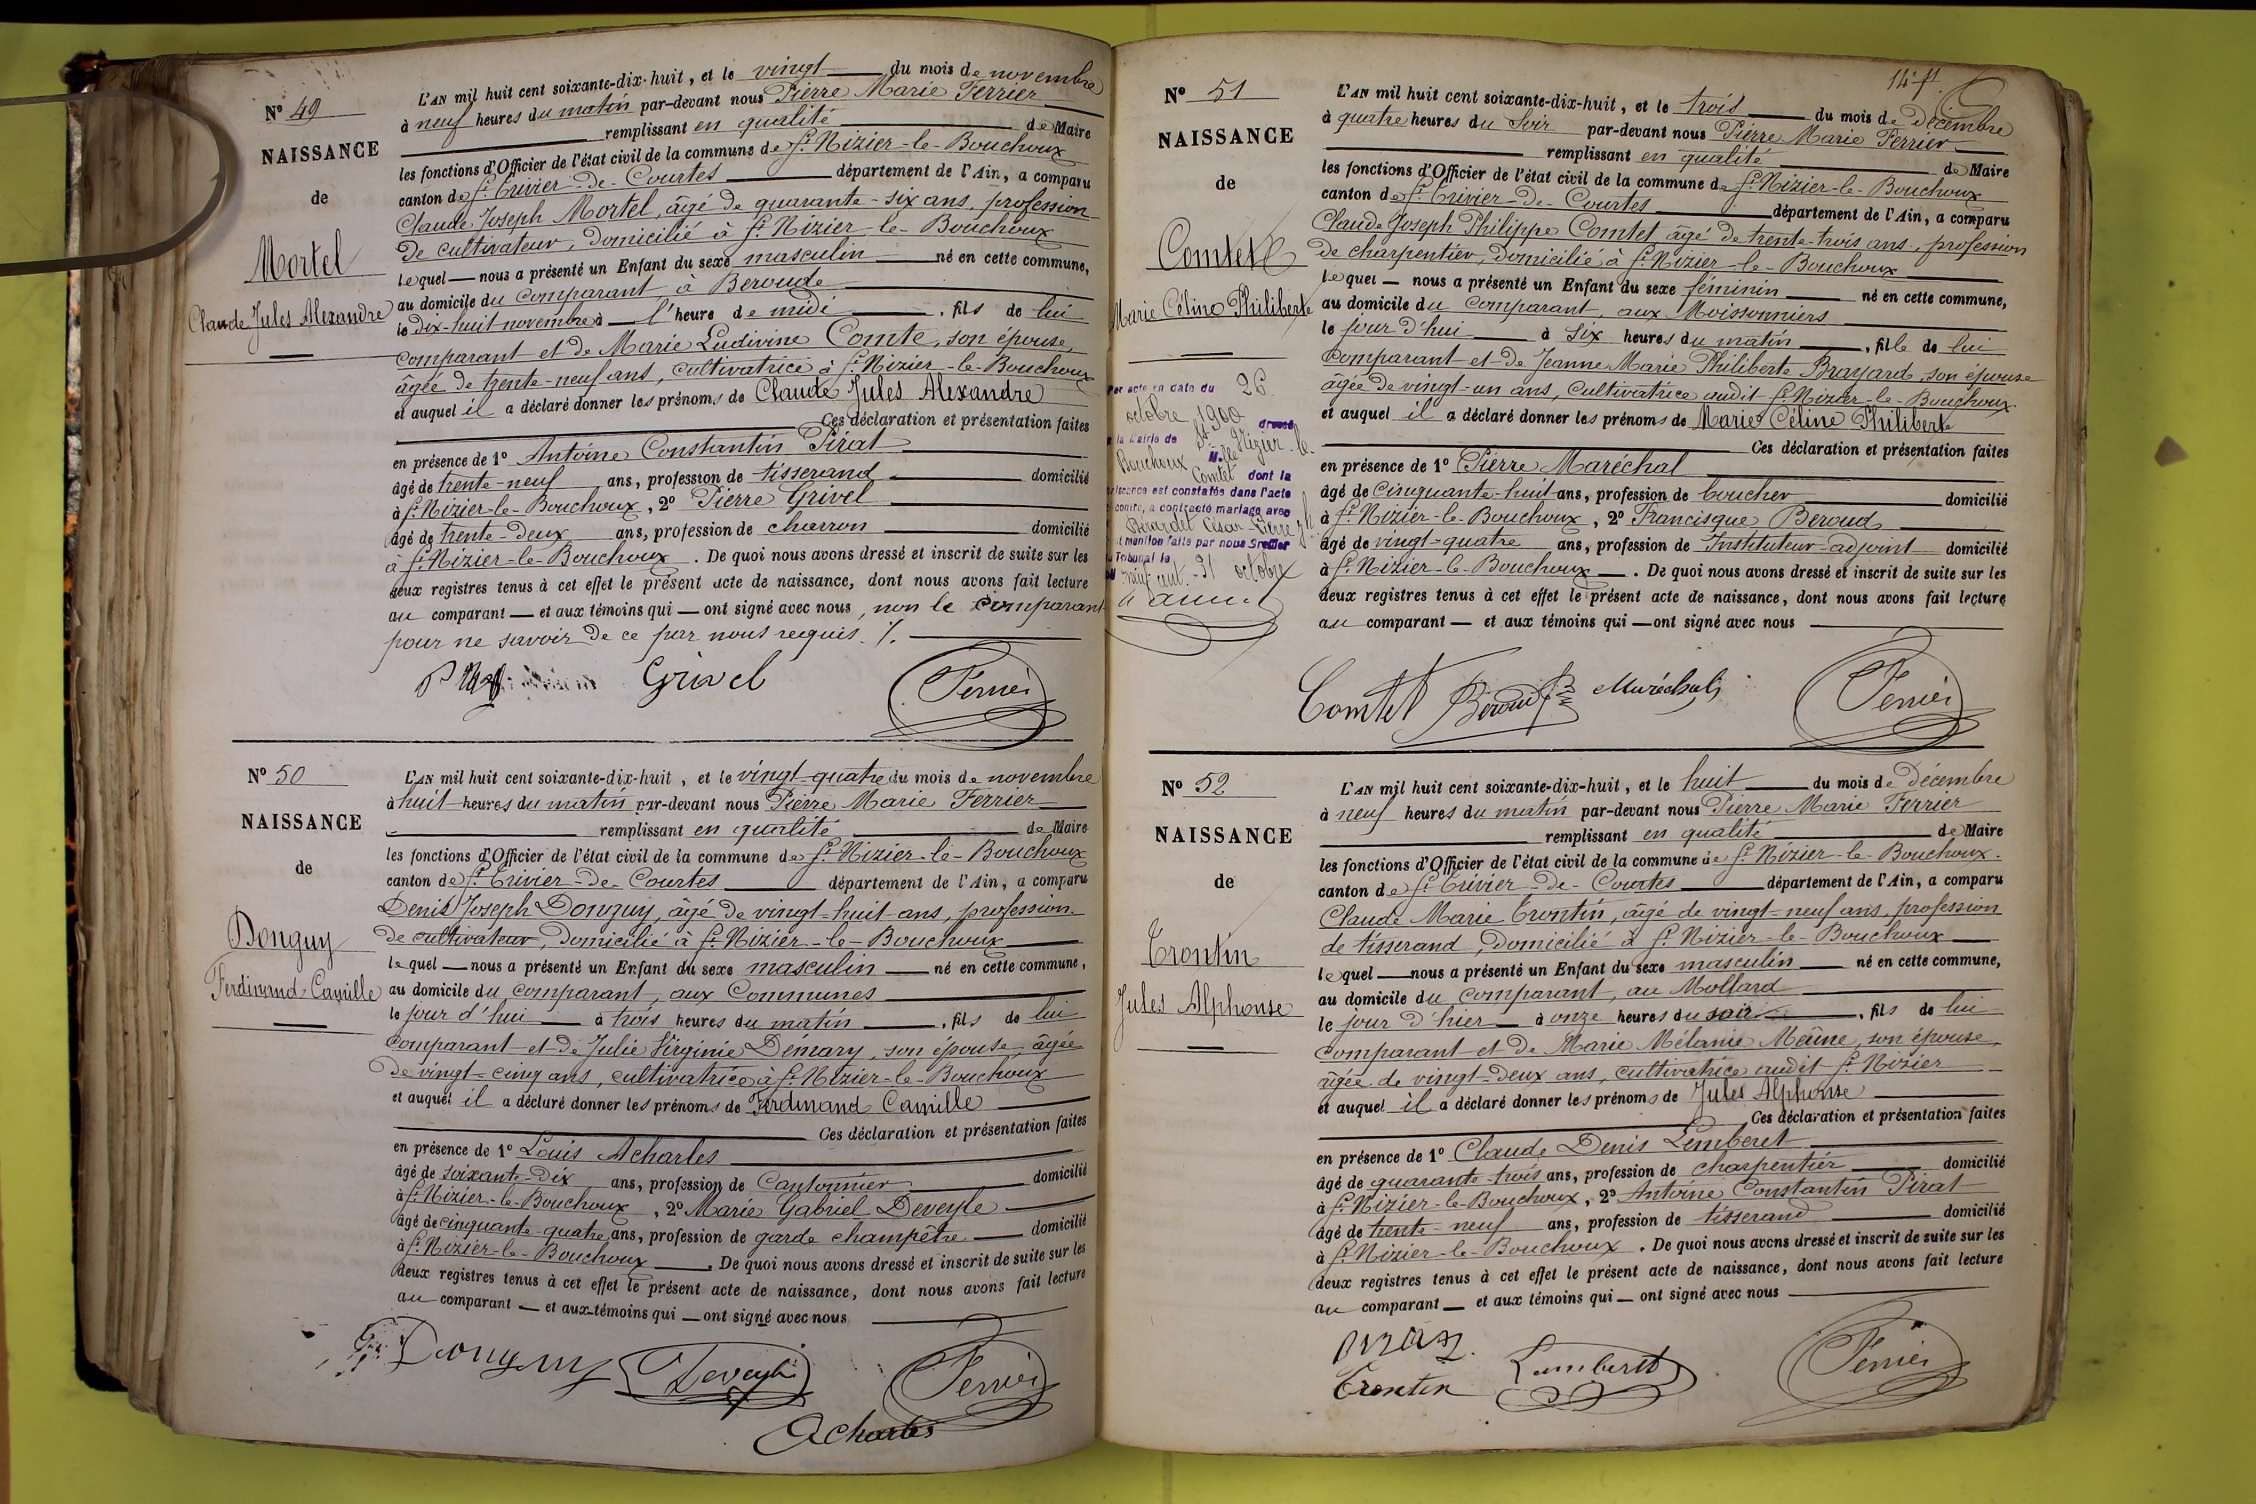 N° 49
NAISSANCE
de
Mortel
Claude Jules Alexandre
L'AN mil huit cent soixante-dix-huit, et le vingt du mois de novembre
à neuf heures du matin par-devant nous Pierre Marie Ferrier
remplissant en qualité de Maire
les fonctions d'Officier de l'état civil de la commune de St Nizier-le-Bouchoux
canton de St Trivier-de-Courtes département de l'Ain, a comparu
Claude Joseph Mortel, âgé de quarante-six ans, profession
de cultivateur, domicilié à St Nizier-le-Bouchoux
lequel nous a présenté un Enfant du sexe masculin né en cette commune,
au domicile du comparant, à Beroude
le dix-huit novembre à l'heure de midi, fils de lui
comparant et de Marie Ludivine Comte, son épouse,
âgée de trente-neuf ans, cultivatrice à St Nizier-le-Bouchoux
et auquel il a déclaré donner les prénoms de Claude Jules Alexandre
Ces déclaration et présentation faites
en présence de 1° Antoine Constantin Pirat
âgé de trente-neuf ans, profession de tisserand domicilié
à St Nizier-le-Bouchoux, 2° Pierre Grivel
âgé de trente-deux ans, profession de charron domicilié
à St Nizier-le-Bouchoux. De quoi nous avons dressé et inscrit de suite sur les
deux registres tenus à cet effet le présent acte de naissance, dont nous avons fait lecture
au comparant et aux témoins qui ont signé avec nous, non le comparant
pour ne savoir de ce par nous requis.
Grivel Ferrier
N° 50
NAISSANCE
de
Donguy
Ferdinand Camille
L'AN mil huit cent soixante-dix-huit, et le vingt-quatre du mois de novembre
à huit heures du matin par-devant nous Pierre Marie Ferrier
remplissant en qualité de Maire
les fonctions d'Officier de l'état civil de la commune de St Nizier-le-Bouchoux
canton de St Trivier-de-Courtes département de l'Ain, a comparu
Denis Joseph Donguy, âgé de vingt-huit ans, profession
de cultivateur, domicilié à St Nizier-le-Bouchoux
lequel nous a présenté un Enfant du sexe masculin né en cette commune,
au domicile du comparant, aux Communes
le jour d'hui à trois heures du matin, fils de lui
comparant et de Julie Virginie Démary, son épouse, âgée
de vingt-cinq ans, cultivatrice à St Nizier-le-Bouchoux
et auquel il a déclaré donner les prénoms de Ferdinand Camille
Ces déclaration et présentation faites
en présence de 1° Louis Acharles
âgé de soixante-dix ans, profession de Cantonnier domicilié
à St Nizier-le-Bouchoux, 2° Marie Gabriel Deveyle
âgé de cinquante-quatre ans, profession de garde champêtre domicilié
à St Nizier-le-Bouchoux. De quoi nous avons dressé et inscrit de suite sur les
deux registres tenus à cet effet le présent acte de naissance, dont nous avons fait lecture
au comparant et aux témoins qui ont signé avec nous
Donguy Deveyle Ferrier
Acharles
14e ft
N° 51
NAISSANCE
de
Comtet
Marie Céline Philiberte
Par acte en date du 26
octobre 1900 dressé
à la Mairie de St Nizier-le-
Bouchoux Mlle
Comtet dont la
naissance est constatée dans l'acte
ci contre, a contracté mariage avec
César Pierre
et mention faite par nous Greffier
du Tribunal le
mil neuf cent 31 octobre
L'AN mil huit cent soixante-dix-huit, et le trois du mois de Décembre
à quatre heures du soir par-devant nous Pierre Marie Ferrier
remplissant en qualité de Maire
les fonctions d'Officier de l'état civil de la commune de St Nizier-le-Bouchoux
canton de St Trivier-de-Courtes département de l'Ain, a comparu
Claude Joseph Philippe Comtet âgé de trente-trois ans, profession
de charpentier, domicilié à St Nizier-le-Bouchoux
lequel nous a présenté un Enfant du sexe féminin né en cette commune,
au domicile du comparant, aux Moissonniers
le jour d'hui à six heures du matin, fille de lui
comparant et de Jeanne Marie Philiberte Brayard, son épouse
âgée de vingt-un ans, cultivatrice audit St Nizier-le-Bouchoux
et auquel il a déclaré donner les prénoms de Marie Céline Philiberte
Ces déclaration et présentation faites
en présence de 1° Pierre Maréchal
âgé de cinquante-huit ans, profession de boucher domicilié
à St Nizier-le-Bouchoux, 2° Francisque Beroud
âgé de vingt-quatre ans, profession de Instituteur-adjoint domicilié
à St Nizier-le-Bouchoux. De quoi nous avons dressé et inscrit de suite sur les
deux registres tenus à cet effet le présent acte de naissance, dont nous avons fait lecture
au comparant et aux témoins qui ont signé avec nous
Comtet Béroud Maréchal Ferrier
N° 52
NAISSANCE
de
Trontin
Jules Alphonse
L'AN mil huit cent soixante-dix-huit, et le huit du mois de Décembre
à neuf heures du matin par-devant nous Pierre Marie Ferrier
remplissant en qualité de Maire
les fonctions d'Officier de l'état civil de la commune de St Nizier-le-Bouchoux.
canton de St Trivier-de-Courtes département de l'Ain, a comparu
Claude Marie Trontin, âgé de vingt-neuf ans, profession
de tisserand, domicilié à St Nizier-le-Bouchoux
lequel nous a présenté un Enfant du sexe masculin né en cette commune,
au domicile du comparant, au Mollard
le jour d'hier à onze heures du soir, fils de lui
comparant et de Marie Mélanie Mâine, son épouse,
âgée de vingt-deux ans, cultivatrice audit St Nizier
et auquel il a déclaré donner les prénoms de Jules Alphonse
Ces déclaration et présentation faites
en présence de 1° Claude Denis Lemberet
âgé de quarante-trois ans, profession de charpentier domicilié
à St Nizier-le-Bouchoux, 2° Antoine Constantin Pirat
âgé de trente-neuf ans, profession de tisserand domicilié
à St Nizier-le-Bouchoux. De quoi nous avons dressé et inscrit de suite sur les
deux registres tenus à cet effet le présent acte de naissance, dont nous avons fait lecture
au comparant et aux témoins qui ont signé avec nous
Trontin Lemberet Ferrier